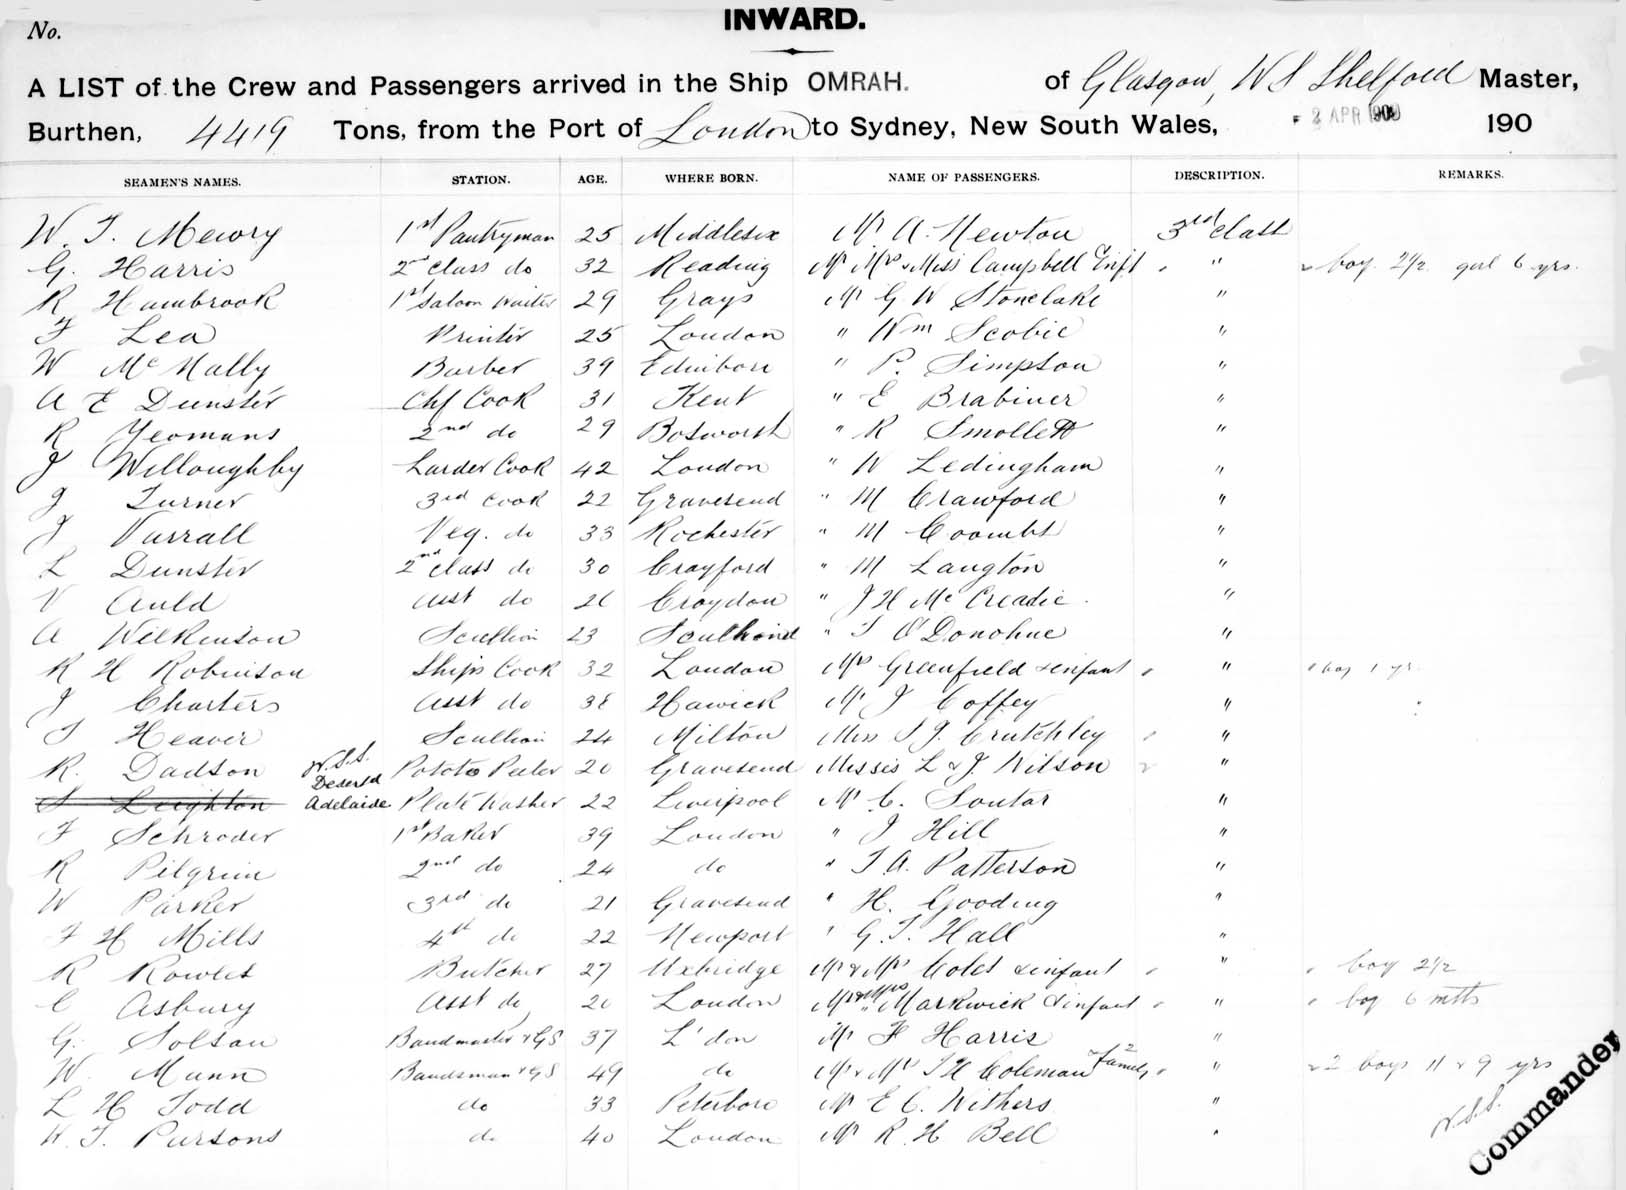 INWARD.
No.
A LIST of the Crew and Passengers arrived in the Ship OMRAH. of Glasgow, W S Shelford Master,
Burthen, 4419 Tons, from the Port of London to Sydney, New South Wales, 2 APR 190
SEAMEN'S NAMES. STATION. AGE. WHERE BORN. NAME OF PASSENGERS. DESCRIPTION. REMARKS.
W. T. Mewry 1st Pantryman 25 Middlesex Mr A. Newton 3rd class
G. Harris 2nd class do 32 Reading Mr Mrs & Miss Campbell & Inft " boy 2½ girl 6 yrs.
R Hambrook 1st Saloon Waiter 29 Grays Mr G W Stonelake "
F Lea Printer 25 London " Wm Scobie "
W McNally Barber 39 Edinboro " P. Simpson "
A E Dunster Chf Cook 31 Kent " E Brabiner "
R Yeomans 2nd do 29 Bosworth " R Smollett "
J Willoughby Larder Cook 42 London " W Ledingham "
J Turner 3rd Cook 22 Gravesend " M Crawford "
J Varrall Veg. do 33 Rochester " M Coombs "
L Dunster 2nd class do 30 Crayford " M Langton "
V Auld Asst do 26 Croydon " J H McCreadie. "
A Wilkinson Scullion 23 Southend " T O'Donohue "
R H Robinson Ships Cook 32 London Mrs Greenfield & infant " boy 1 yr.
J Charters Asst do 38 Hawick Mr J Coffey "
T Heaver Scullion 24 Milton Miss J. Crutchley "
R. Dadson Potato Peeler 20 Gravesend Misses L & J. Wilson "
S Leighton W.S.S. Desertd Adelaide Plate Washer 22 Liverpool Mr C. Soutar "
F Schroder 1st Baker 39 London " J Hill "
R Pilgrim 2nd do 24 do " T A. Patterson "
W Parker 3rd do 21 Gravesend " H. Gooding "
F H Mills 4th do 22 Newport " G. T. Hall "
R Rowles Butcher 27 Uxbridge Mr & Mrs Coles & infant " boy 2½
C Asbury Asst do 20 London Mr & Mrs Markwick & infant " boy 6 mths
G. Solsan Bandmaster & GS 37 L'don Mr F Harris "
W. Munn Bandsman & GS 49 do Mr & Mrs T H Coleman & 2 family " 2 boys 11 & 9 yrs
L H Todd do 33 Peterboro Mr E C. Withers "
T. Parsons do 40 London Mr R. H Bell "
W.S.S.
Commander